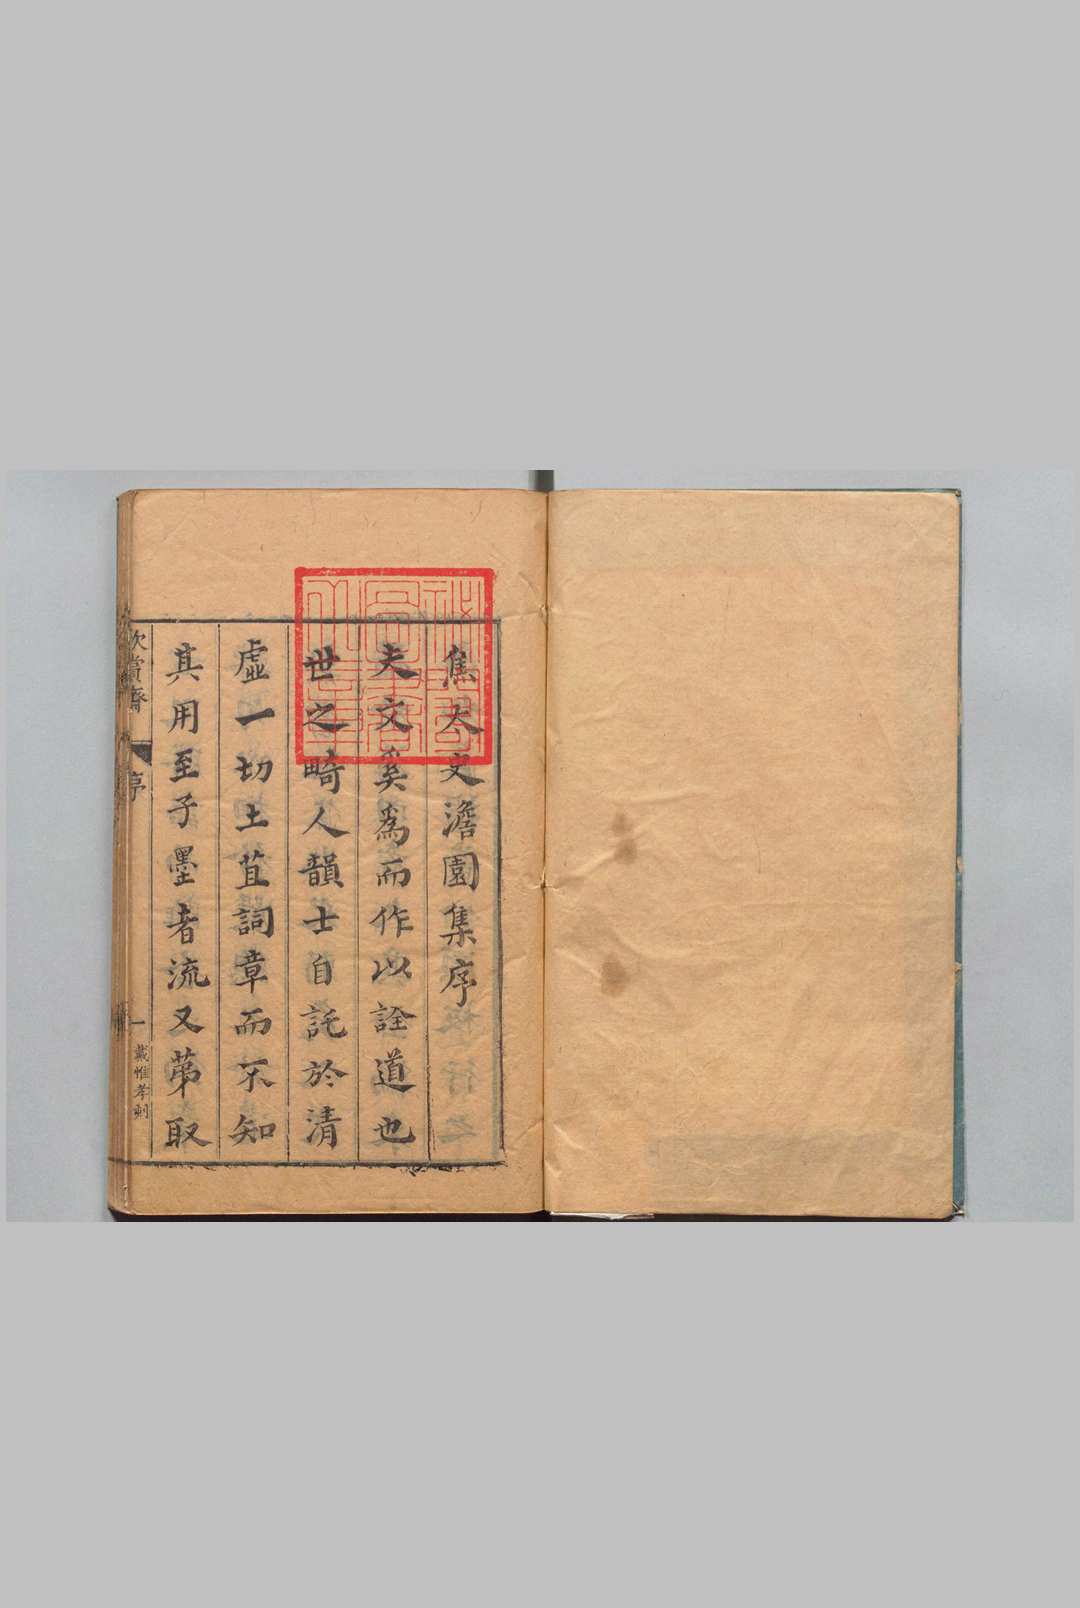 焦太史澹園集序
夫文奚爲而作以詮道也
世之畸人韻士自託於清
虛一切土苴詞章而不知
其用至子墨者流又苐取
欣賞齋
序
一
戴惟孝刻